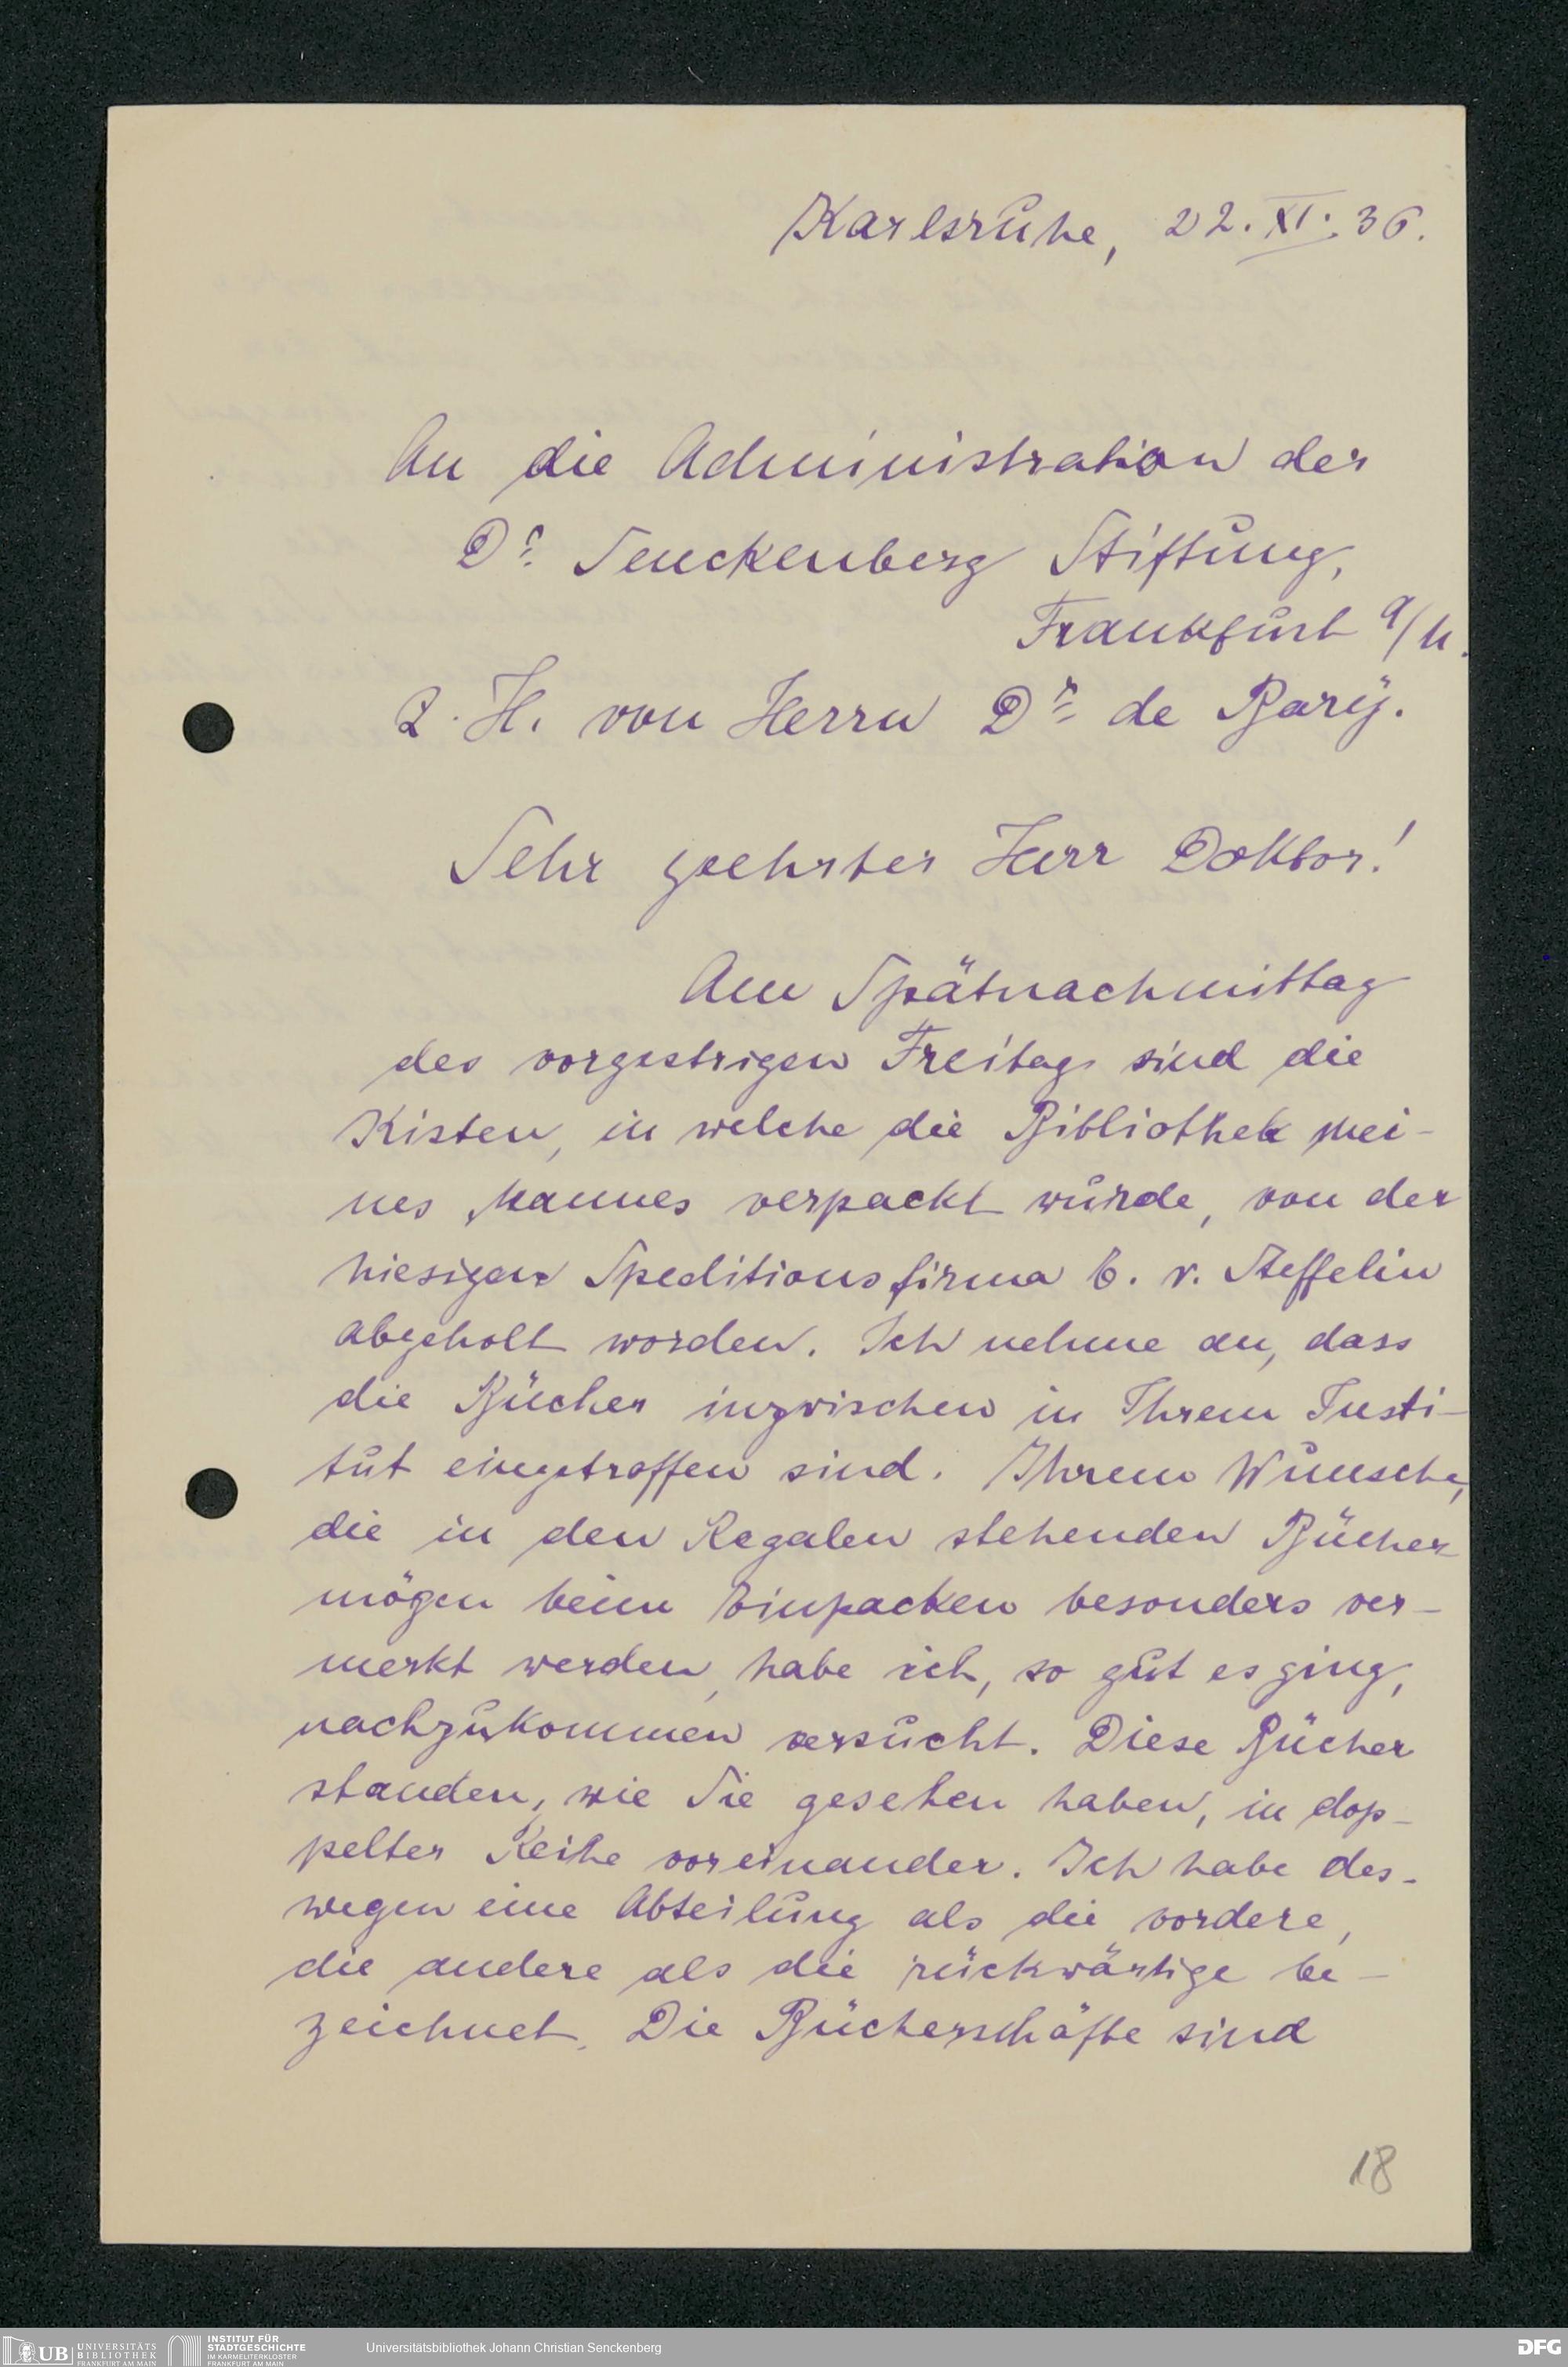 Karlsruhe, 22. XI. 36.
An die Administration der
Dr. Senckenberg Stiftung,
Frankfurt a/M.
Z. H. von Herrn Dr. de Bary.
Sehr geehrter Herr Doktor!
Am Spätnachmittag
des vorgestrigen Freitags sind die
Kisten, in welche die Bibliothek mei-
nes Mannes verpackt wurde, von der
hiesigen Speditionsfirma E. v. Steffelin
abgeholt worden. Ich nehme an, dass
die Bücher inzwischen in Ihrem Insti-
tut eingetroffen sind. Ihrem Wunsche,
die in den Regalen stehenden Bücher
mögen beim Einpacken besonders ver-
merkt werden, habe ich, so gut es ging,
nachzukommen versucht. Diese Bücher
standen, wie Sie gesehen haben, in dop-
pelter Reihe voreinander. Ich habe des-
wegen eine Abteilung als die vordere,
die andere als die rückwärtige be-
zeichnet. Die Bücherschäfte sind
18
UB UNIVERSITÄTS
BIBLIOTHEK
FRANKFURT AM MAIN
INSTITUT FÜR
STADTGESCHICHTE
IM KARMELITERKLOSTER
FRANKFURT AM MAIN
Universitätsbibliothek Johann Christian Senckenberg
DFG